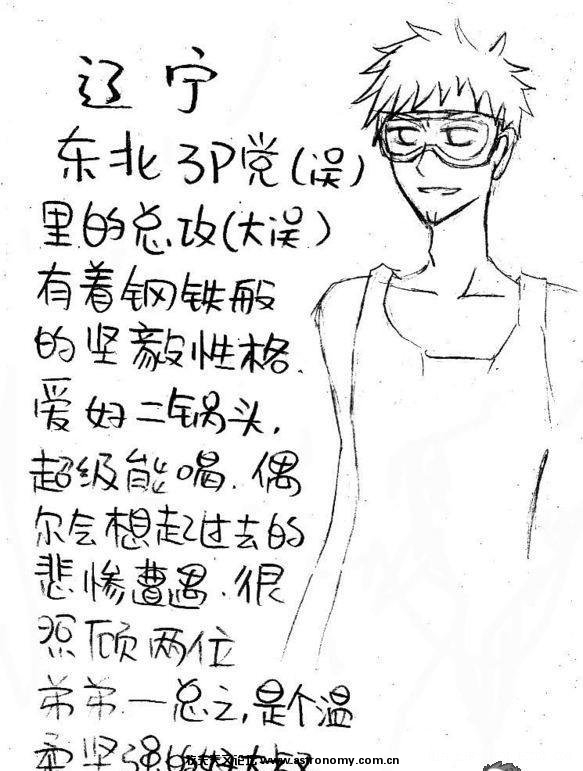 辽宁
东北3P党(误)
里的总攻(大误)
有着钢铁般
的坚毅性格.
爱好二锅头,
超级能喝.偶
尔会想起过去的
悲惨遭遇.很
照顾两位
弟弟.—总之,是个温
柔坚强的好大叔
www.astronomy.com.cn